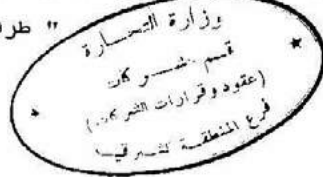 " طر
وزارة التجـــارة
قسم شـــركات
(عقود وقرارات الشركات)
فرع المنطقـة الشـرقيـة